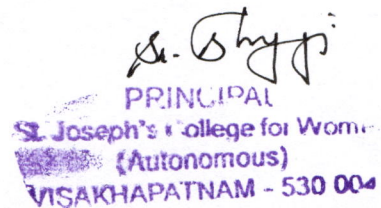 Sr. Shyji
PRINCIPAL
St. Joseph's College for Wom
(Autonomous)
VISAKHAPATNAM - 530 004